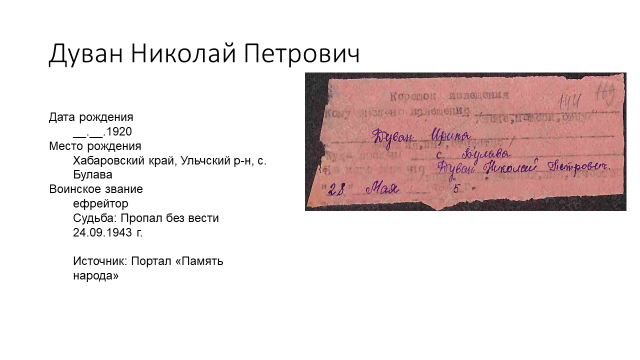 Дуван Николай Петрович
Дата рождения
__.__.1920
Место рождения
Хабаровский край, Ульчский р-н, с.
Булава
Воинское звание
ефрейтор
Судьба: Пропал без вести
24.09.1943 г.
Источник: Портал «Память
народа»
144 169
Корешок извещения
Кому
Дуван Ирина
с. Булава
Дуван Николай Петрович.
"28" Мая 5